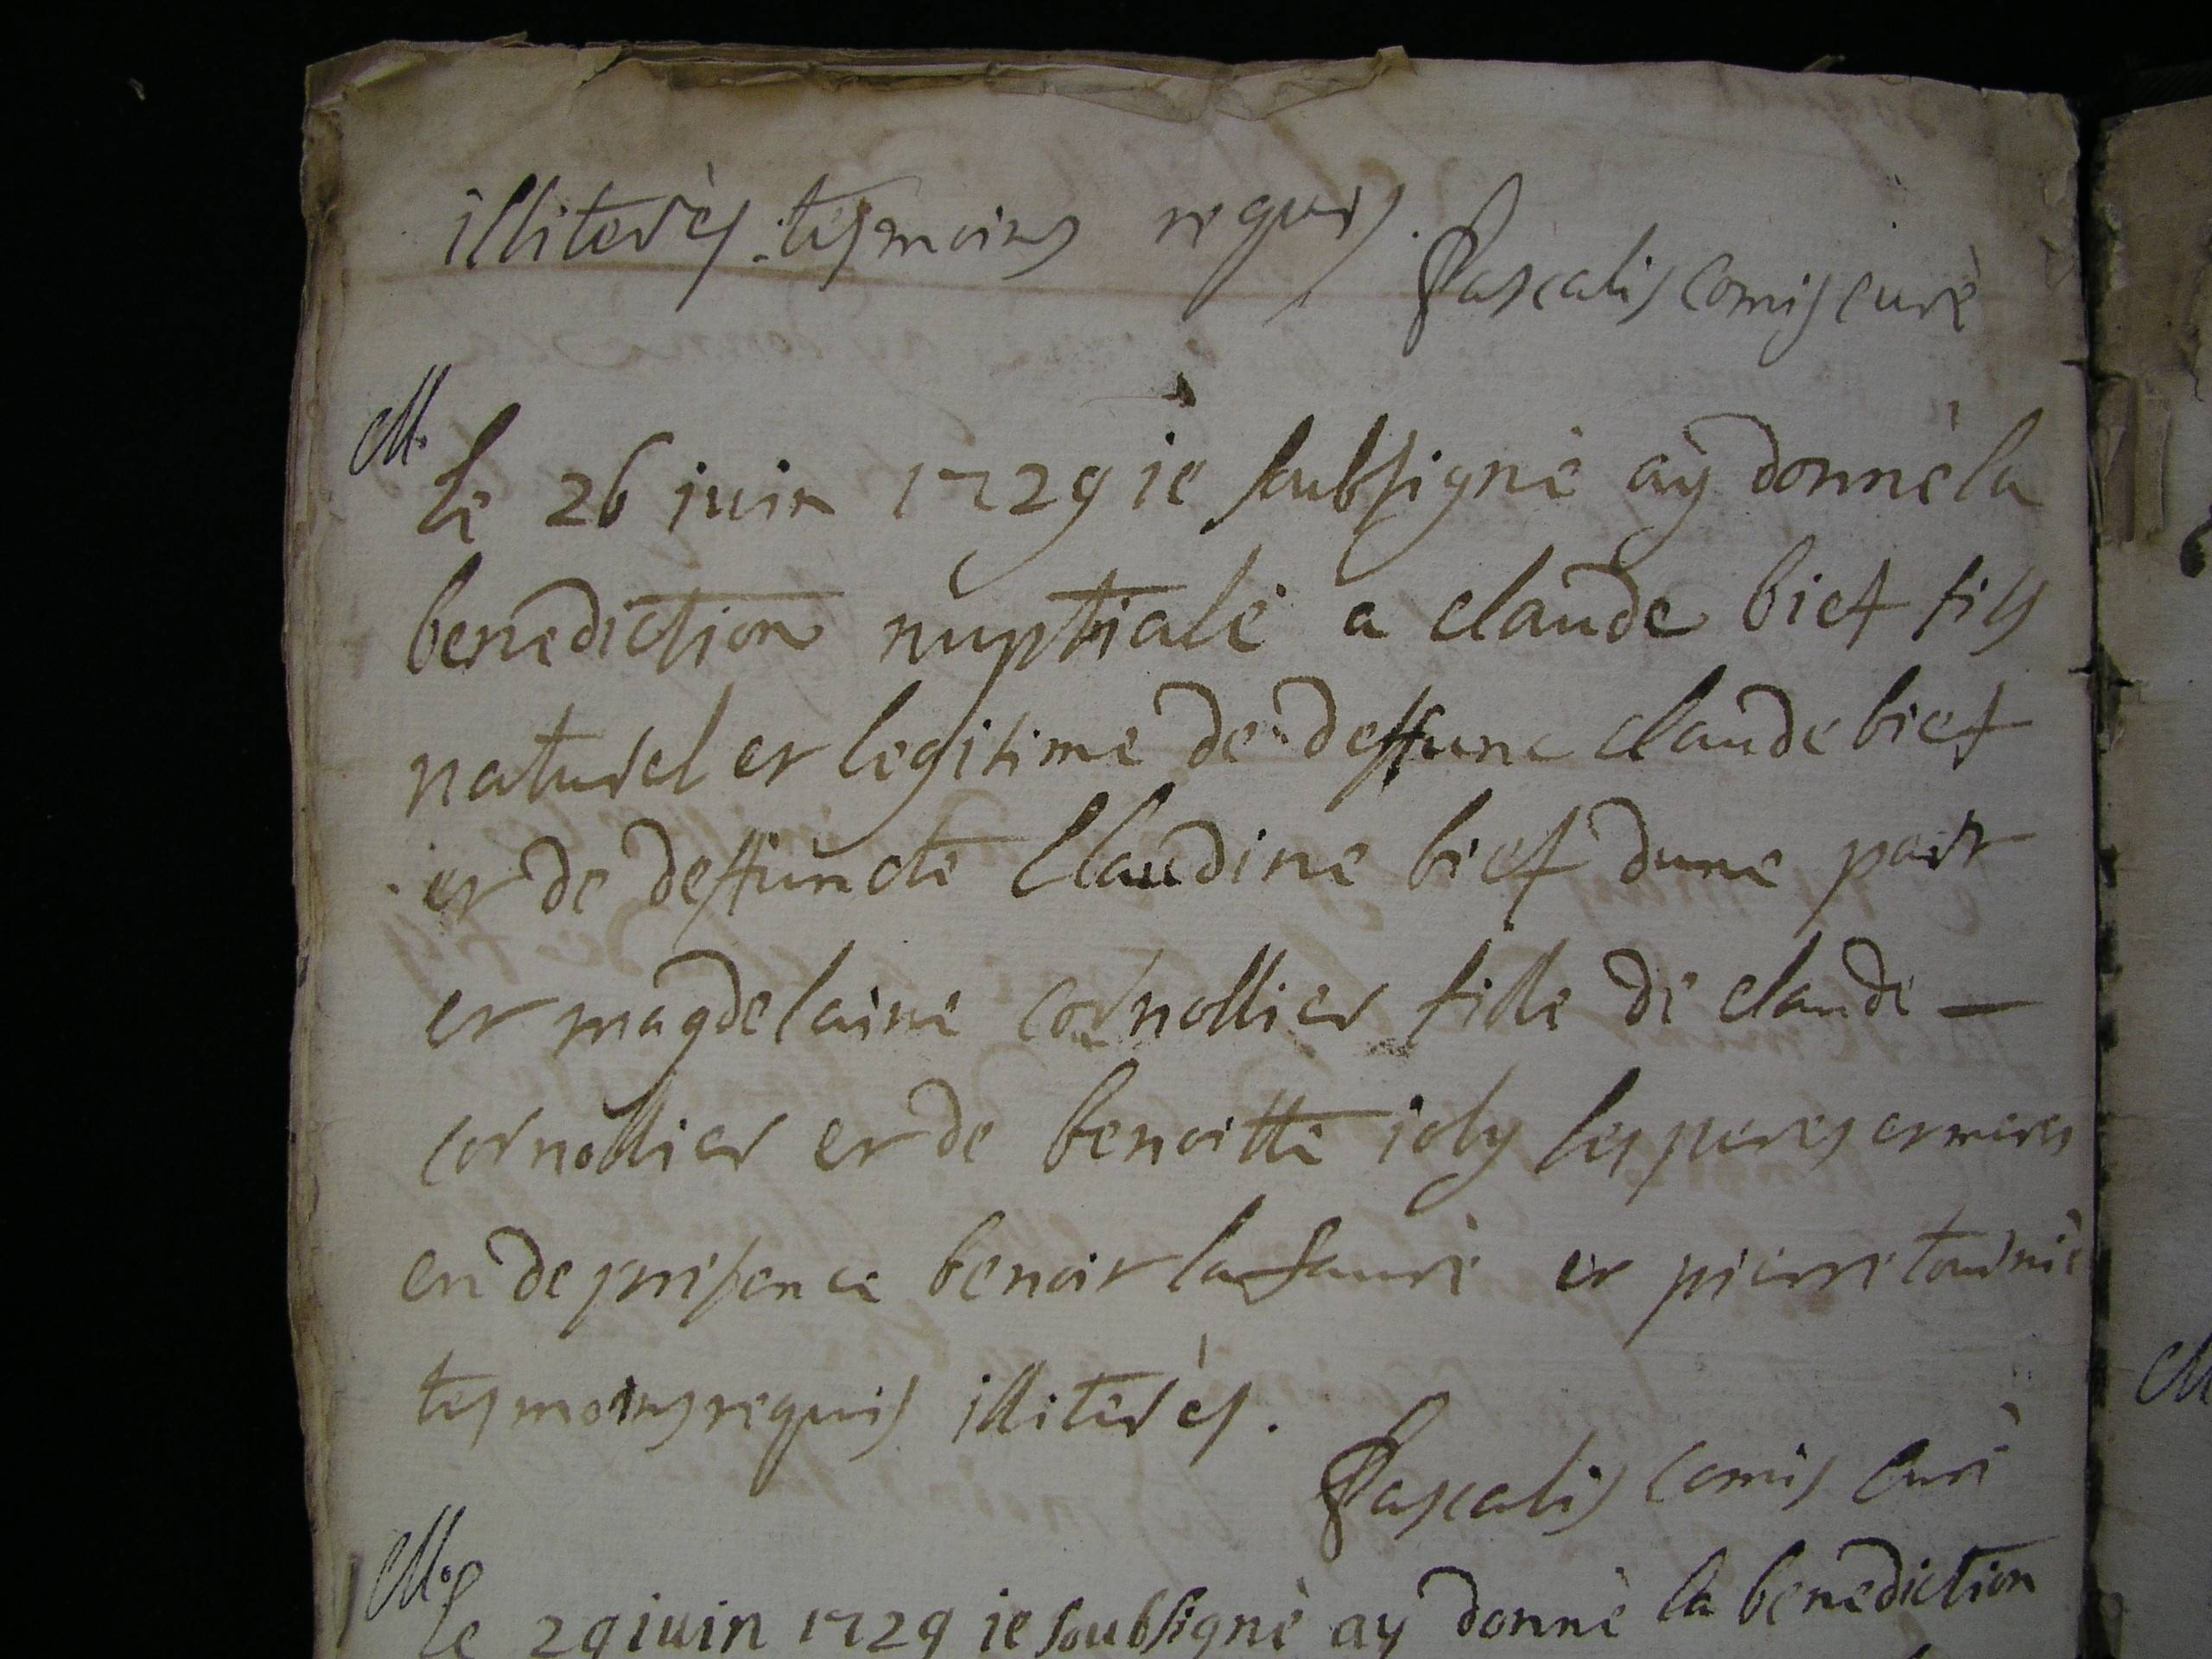 illiterès tesmoins requis.
Pascalis comis curè
M.
le 26 juin 1729 ie soubsignè ay donnè la
benediction nuptiale a claude bief fils
naturel et legitime de deffunc claude bief
et de deffuncte Claudine bief dune part
et magdelaine cornollier fille de claude —
cornollier et de benoitte ioly les peres et meres
en de presence benoit lafaure et pierre tournié
tesmoins requis illiterès.
Pascalis comis curè
M.
le 29 iuin 1729 ie soubsignè ay donnè la benediction
M